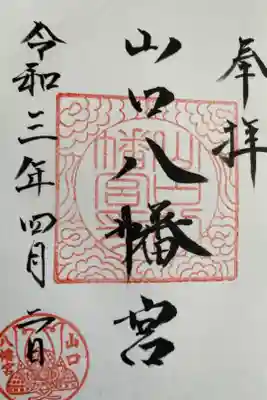 奉拝
山口八幡宮
令和三年四月二日
山口八幡宮
山口
八幡宮